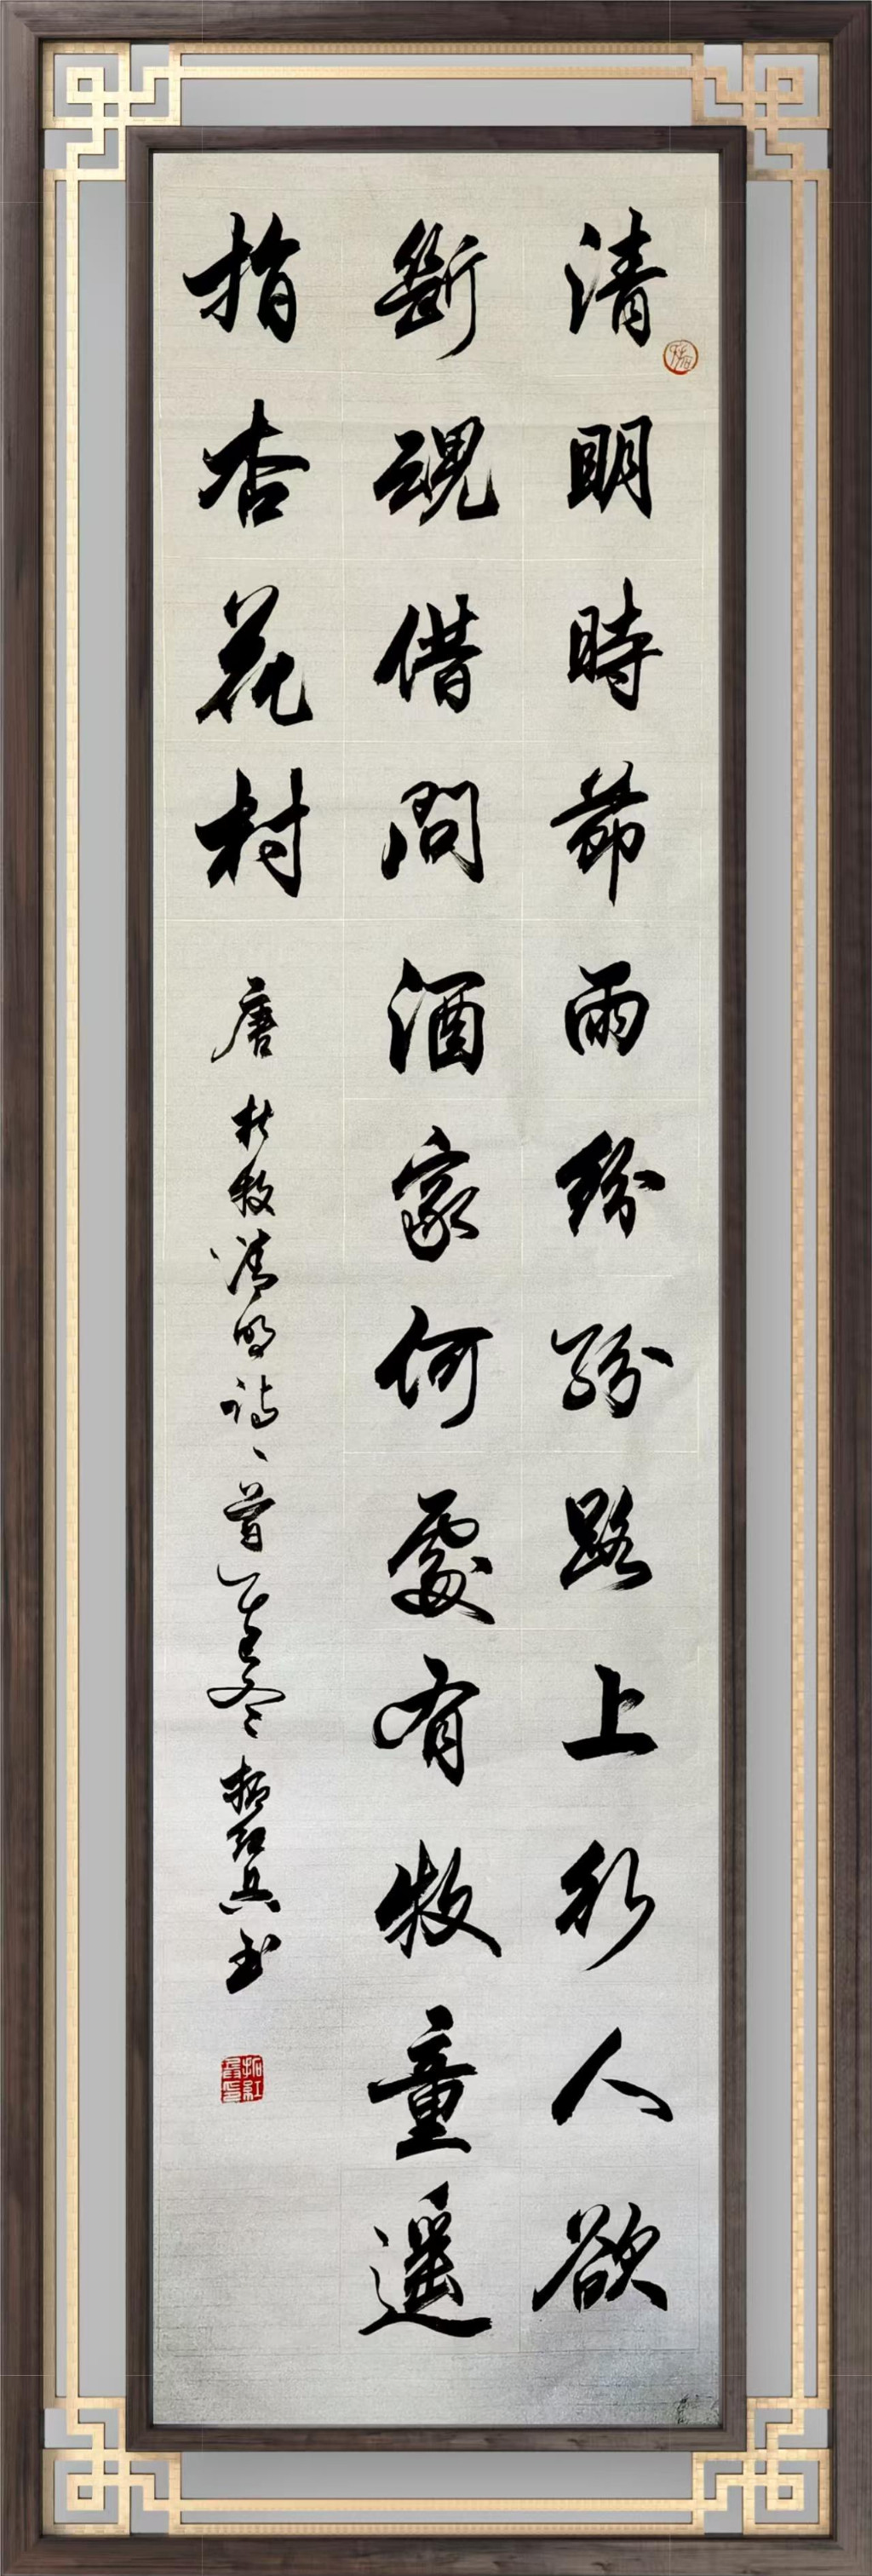 清明時節雨紛紛路上行人欲
斷魂借問酒家何處有牧童遙
指杏花村
唐杜牧清明詩一首 冬 书